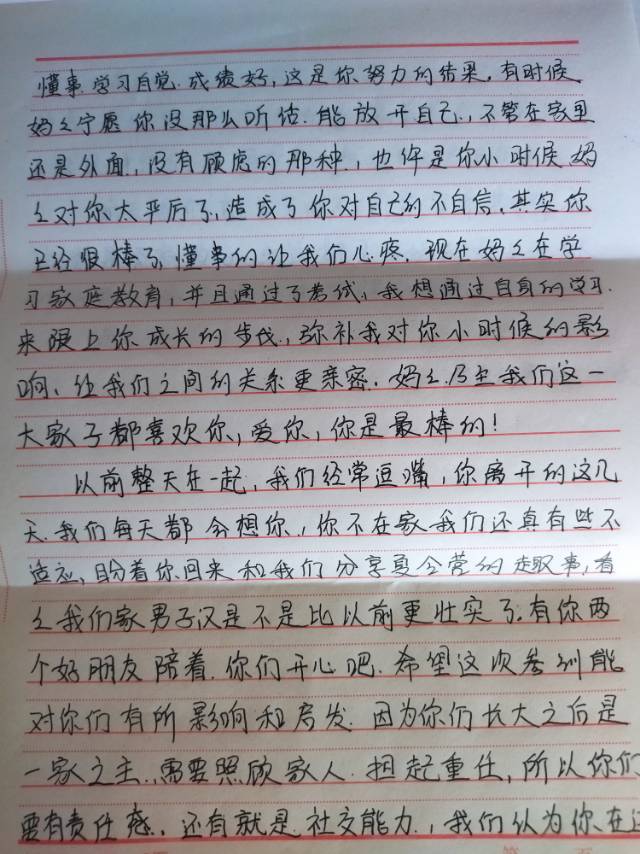 懂事,学习自觉.成绩好,这是你努力的结果,有时候
妈么宁愿你没那么听话.能放开自己.,不管在家里
还是外面.,没有顾虑的那种.,也许是你小时候妈
么对你太严厉了,造成了你对自己的不自信.其实你
已经很棒了,懂事的让我们心疼.现在妈么在学
习家庭教育,并且通过了考试,我想通过自身的学习.
来跟上你成长的步伐.,弥补我对你小时候的影
响、让我们之间的关系更亲密.妈么乃至我们这一
大家子都喜欢你,爱你,你是最棒的!
以前整天在一起,我们经常逗嘴,你离开的这几
天.我们每天都会想你.,你不在家我们还真有些不
适应,盼着你回来和我们分享夏令营的趣事,看
么我们家男子汉是不是比以前更壮实了.有你两
个好朋友陪着.你们开心吧.希望这次参训能
对你们有所影响和启发.因为你们长大之后是
一家之主.,需要照顾家人.担起重任,所以你们
要有责任感.还有就是.社交能力.,我们认为你在这